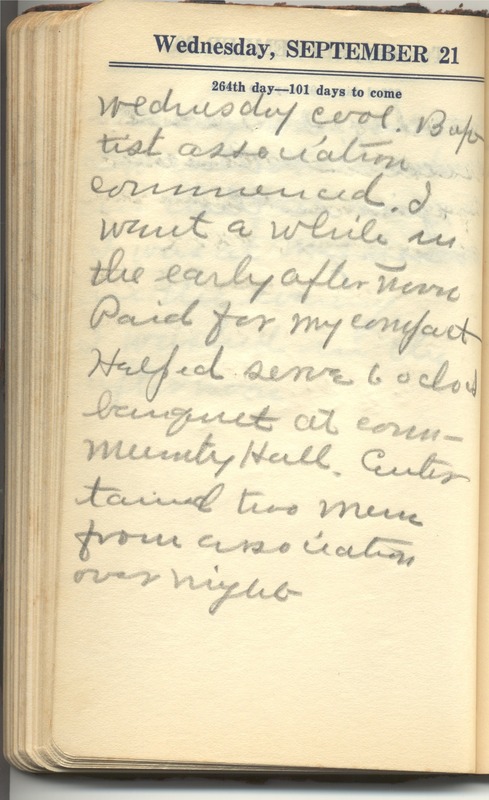 Wednesday, SEPTEMBER 21
264th day—101 days to come
Wednesday cool. Bap
tist association
commenced. I
went a while in
the early afternoon
Paid for my comfort
Helped serve 6 oclock
banquet at com-
munity Hall. Enter
tained two men
from association
over night